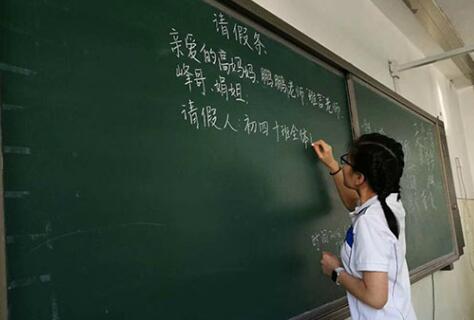 请假条
亲爱的高妈妈、鹏鹏老师、雅言老师、
峰哥、娟姐、
请假人:初四十班全体
时间